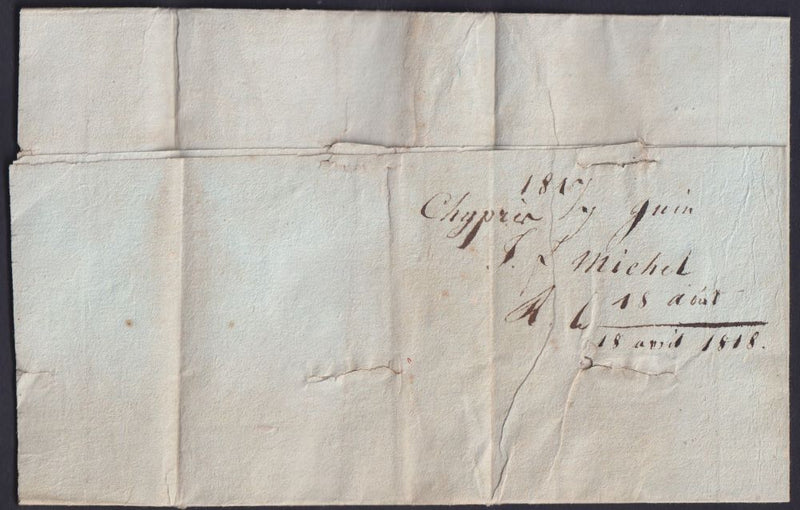 1817
Chypre 7 juin
J. L Michel
R. le 18 août
18 avril 1818.